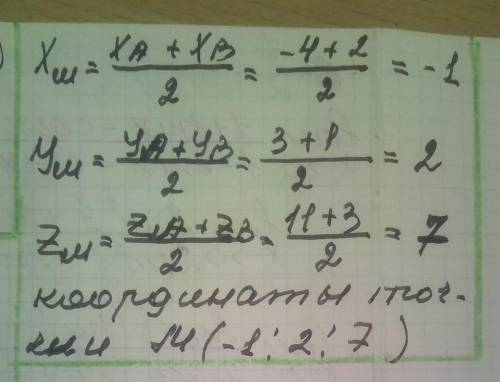 Xм = (XA + XB)/2 = (-4+2)/2 = -1
Yм = (YA + YB)/2 = (3+1)/2 = 2
Zм = (ZA + ZB)/2 = (11+3)/2 = 7
координаты точ-
ки М (-1; 2; 7)